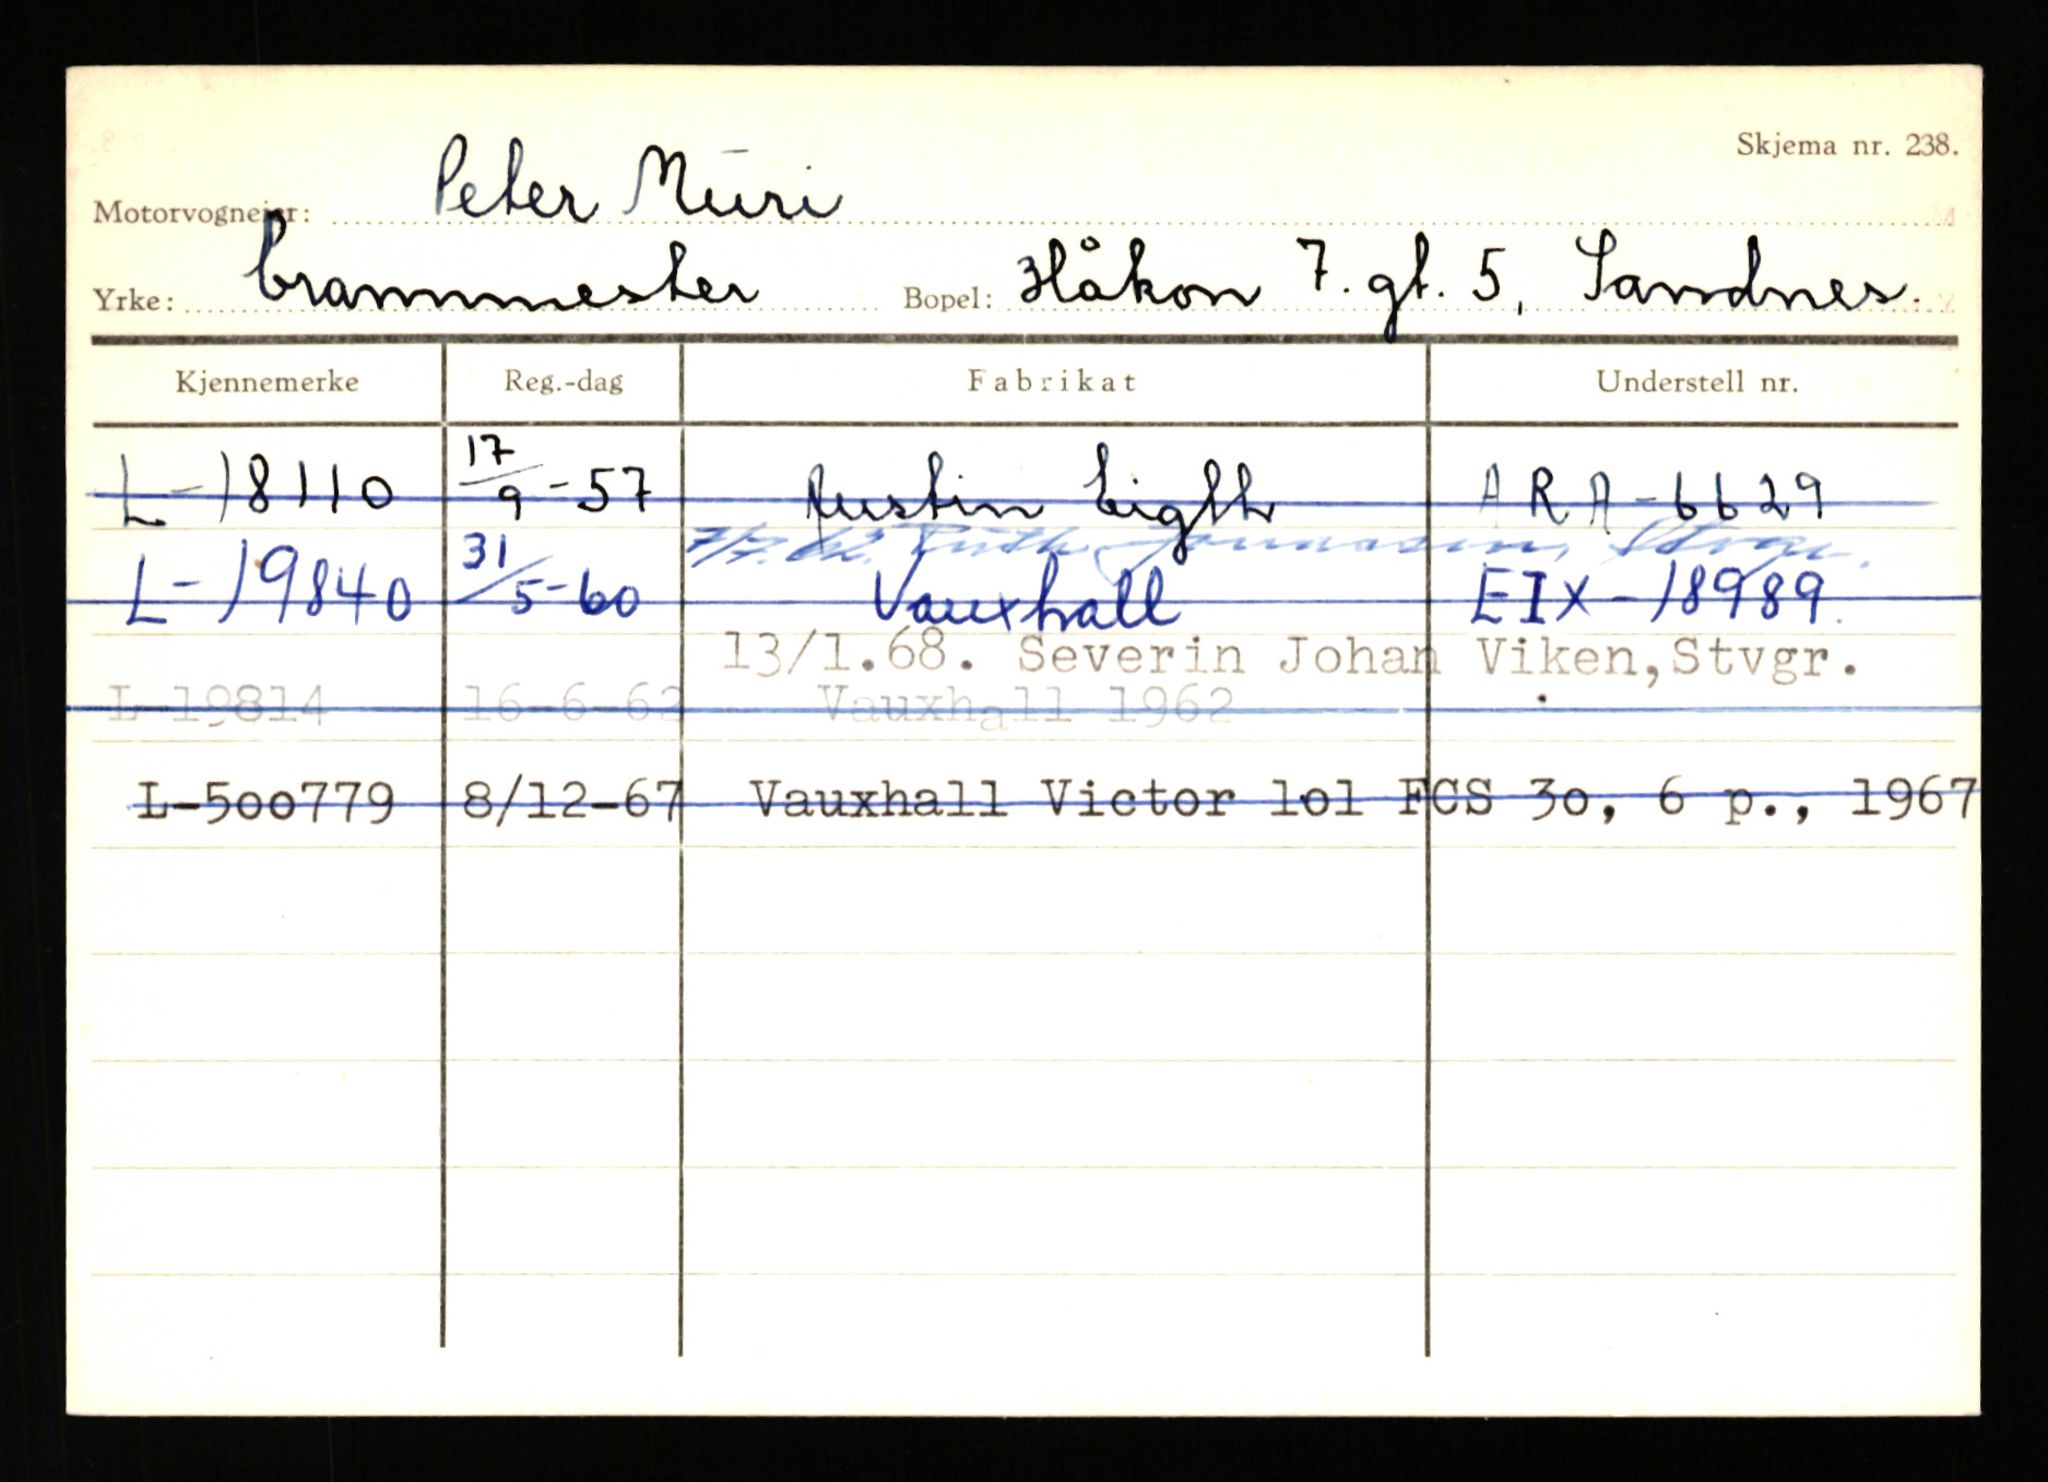 Skjema nr. 238.
Motorvogneier: Peter Müri
Yrke: brannmester Bopel: Håkon 7. gt. 5, Sandnes.
Kjennemerke Reg.-dag Fabrikat Understell nr.
L-18110 17/9-57 Austin Eight ARA-6629
Ruth Stvgr.
L-19840 31/5-60 Vauxhall EIX-18989.
13/1.68. Severin Johan Viken,Stvgr.
L-19814 16-6-62 Vauxhall 1962
L-500779 8/12-67 Vauxhall Victor lol FCS 3o, 6 p., 1967